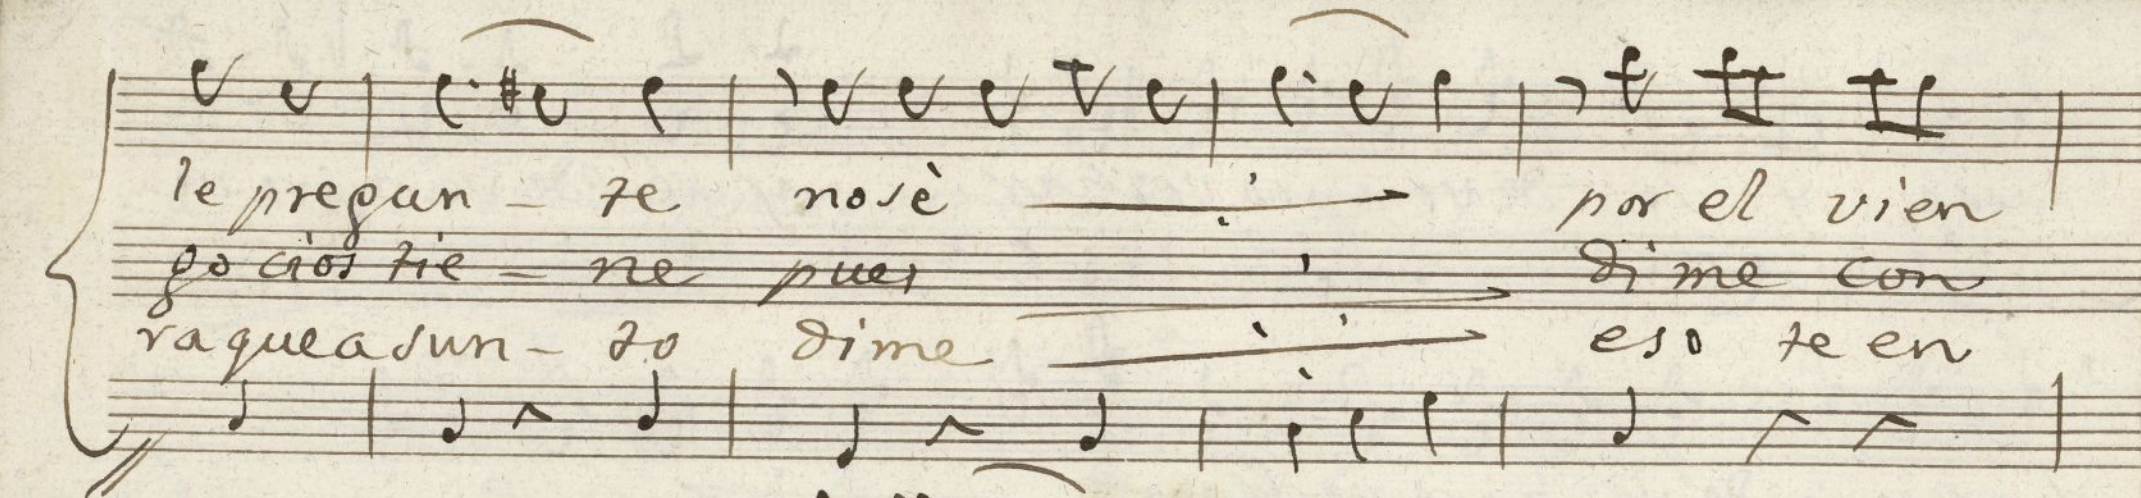 le pregun - te nosè por el vien
gocios tie - ne pues dime con
ra que asun - to dime eso te en